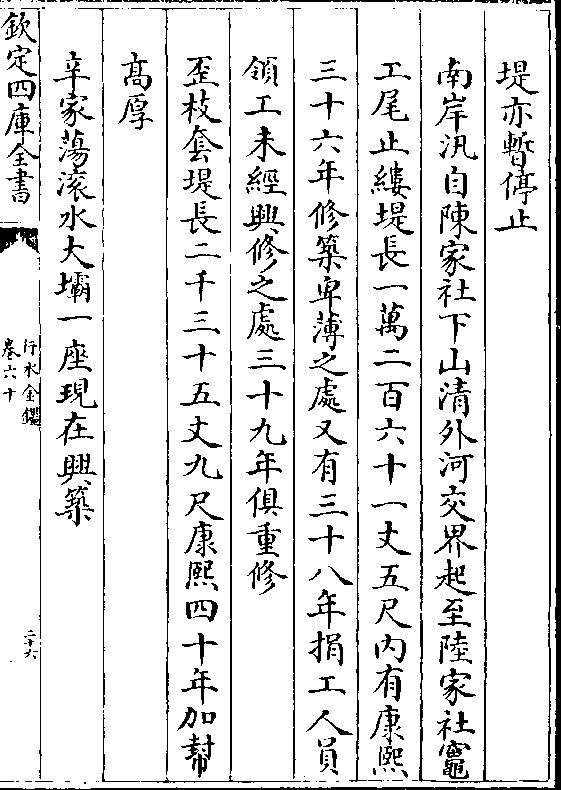 堤亦暫停止
南岸汛自陳家社下山清外河交界起至陸家社竈
工尾止縷堤長一萬二百六十一丈五尺内有康熙
三十六年修築卑薄之處又有三十八年捐工人員
領工未經興修之處三十九年俱重修
歪枝套堤長二千三十五丈九尺康熙四十年加幇
髙厚
辛家蕩滚水大壩一座現在興築
欽定四庫全書
行水金鑑
卷六十
二十六